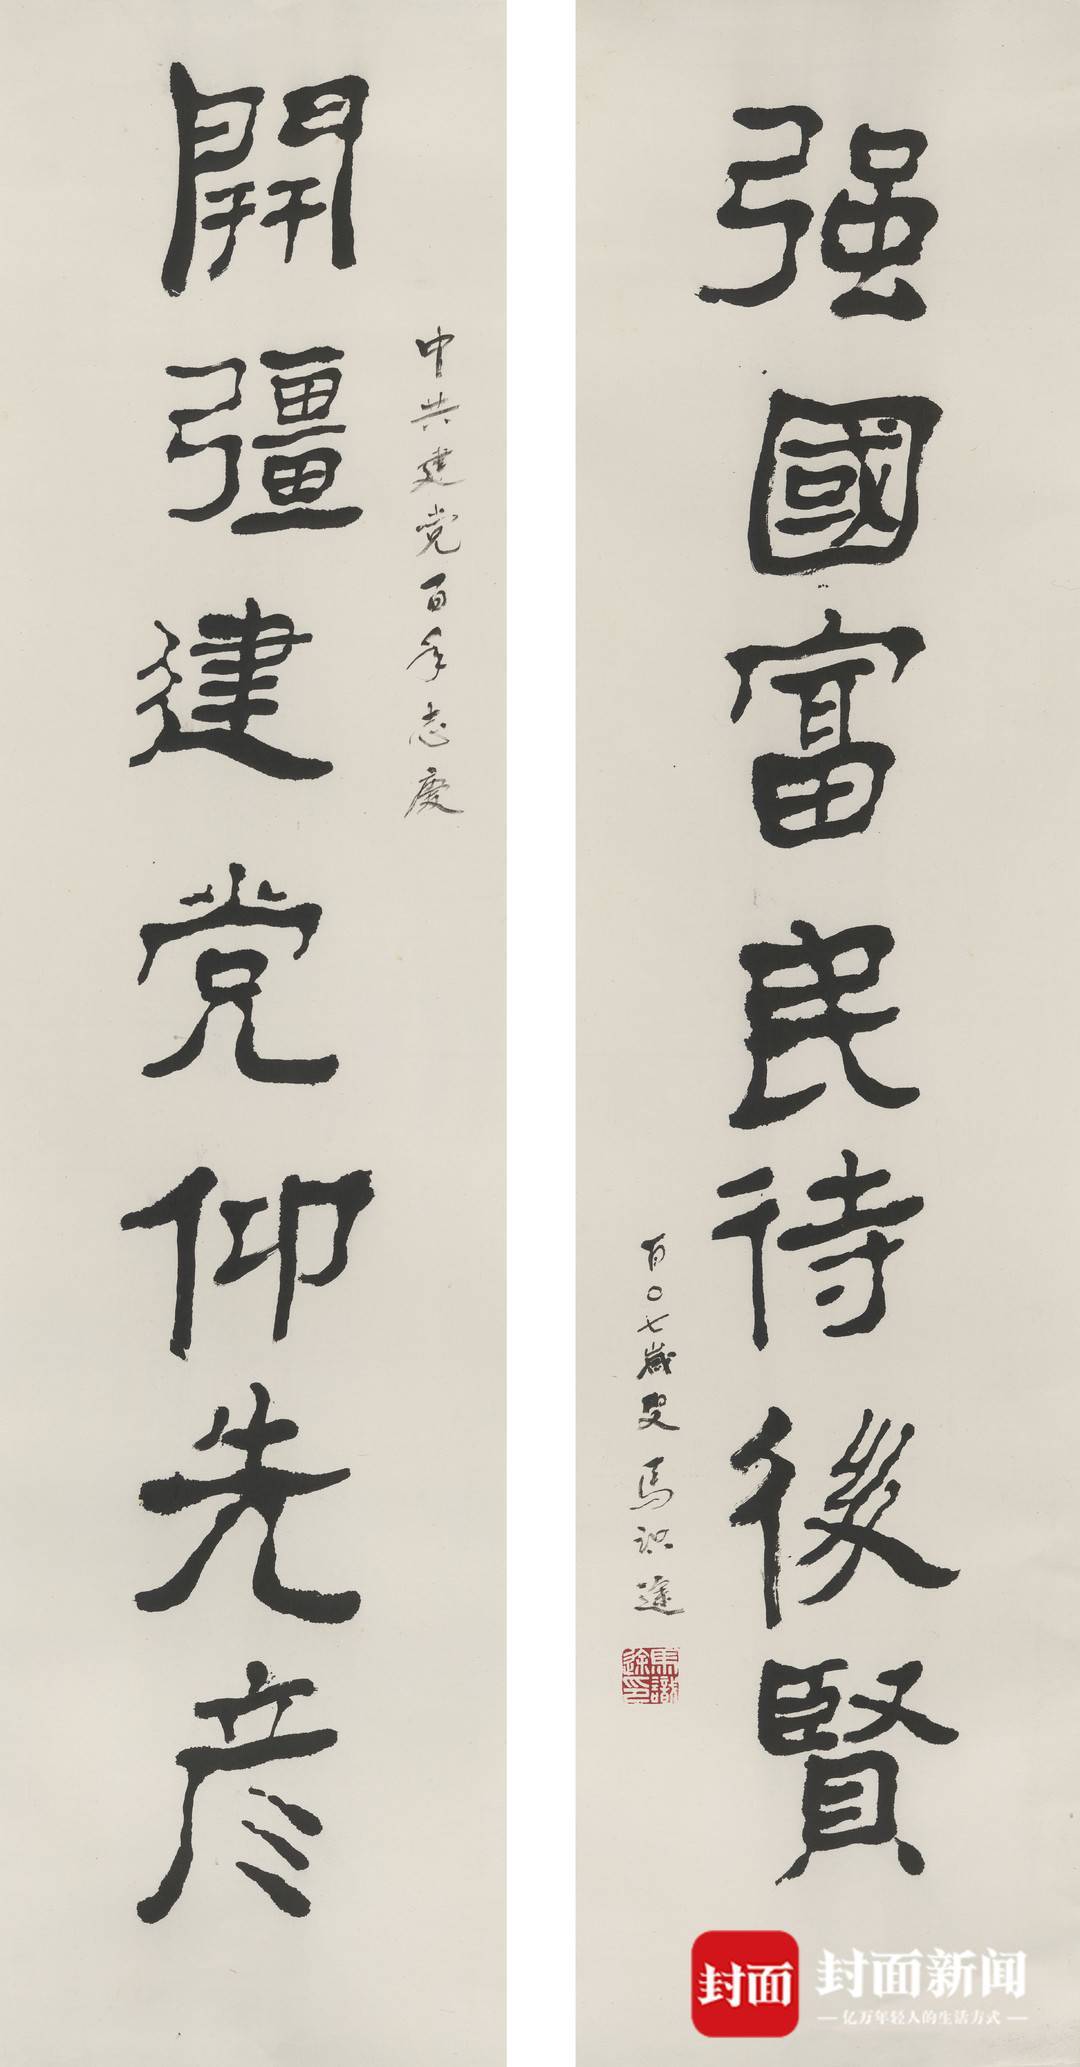 開彊建党仰先彦
中共建党百年志慶
强國富民待後賢
百〇七歲叟 马识途
馬識途印
封面
封面新闻
— 亿万年轻人的生活方式 —